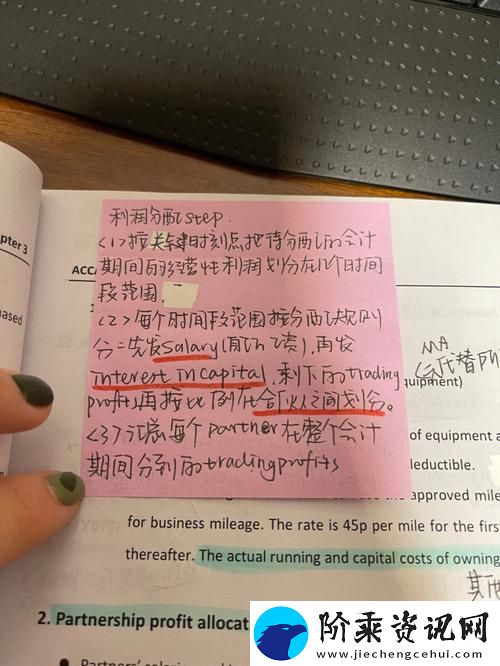 利润分配step.
<1>按关键时刻点,把待分配的会计
期间的经营性利润划分在几个时间
段范围.
<2>每个时间段范围按分配规则
分:先发salary(有几发),再发
interest in capital,剩下的trading
profits再按比例在合伙人之间划分。
<3>汇总每个partner在整个会计
期间分到的trading profits
pter 3
ased
ACCA
1
MA
会代替
quipment)
of equipment a
deductible.
approved mile
for business mileage. The rate is 45p per mile for the firs
thereafter. The actual running and capital costs of owning
其
2. Partnership profit allocat
阶乘资讯网
www.jiechengcehui.com